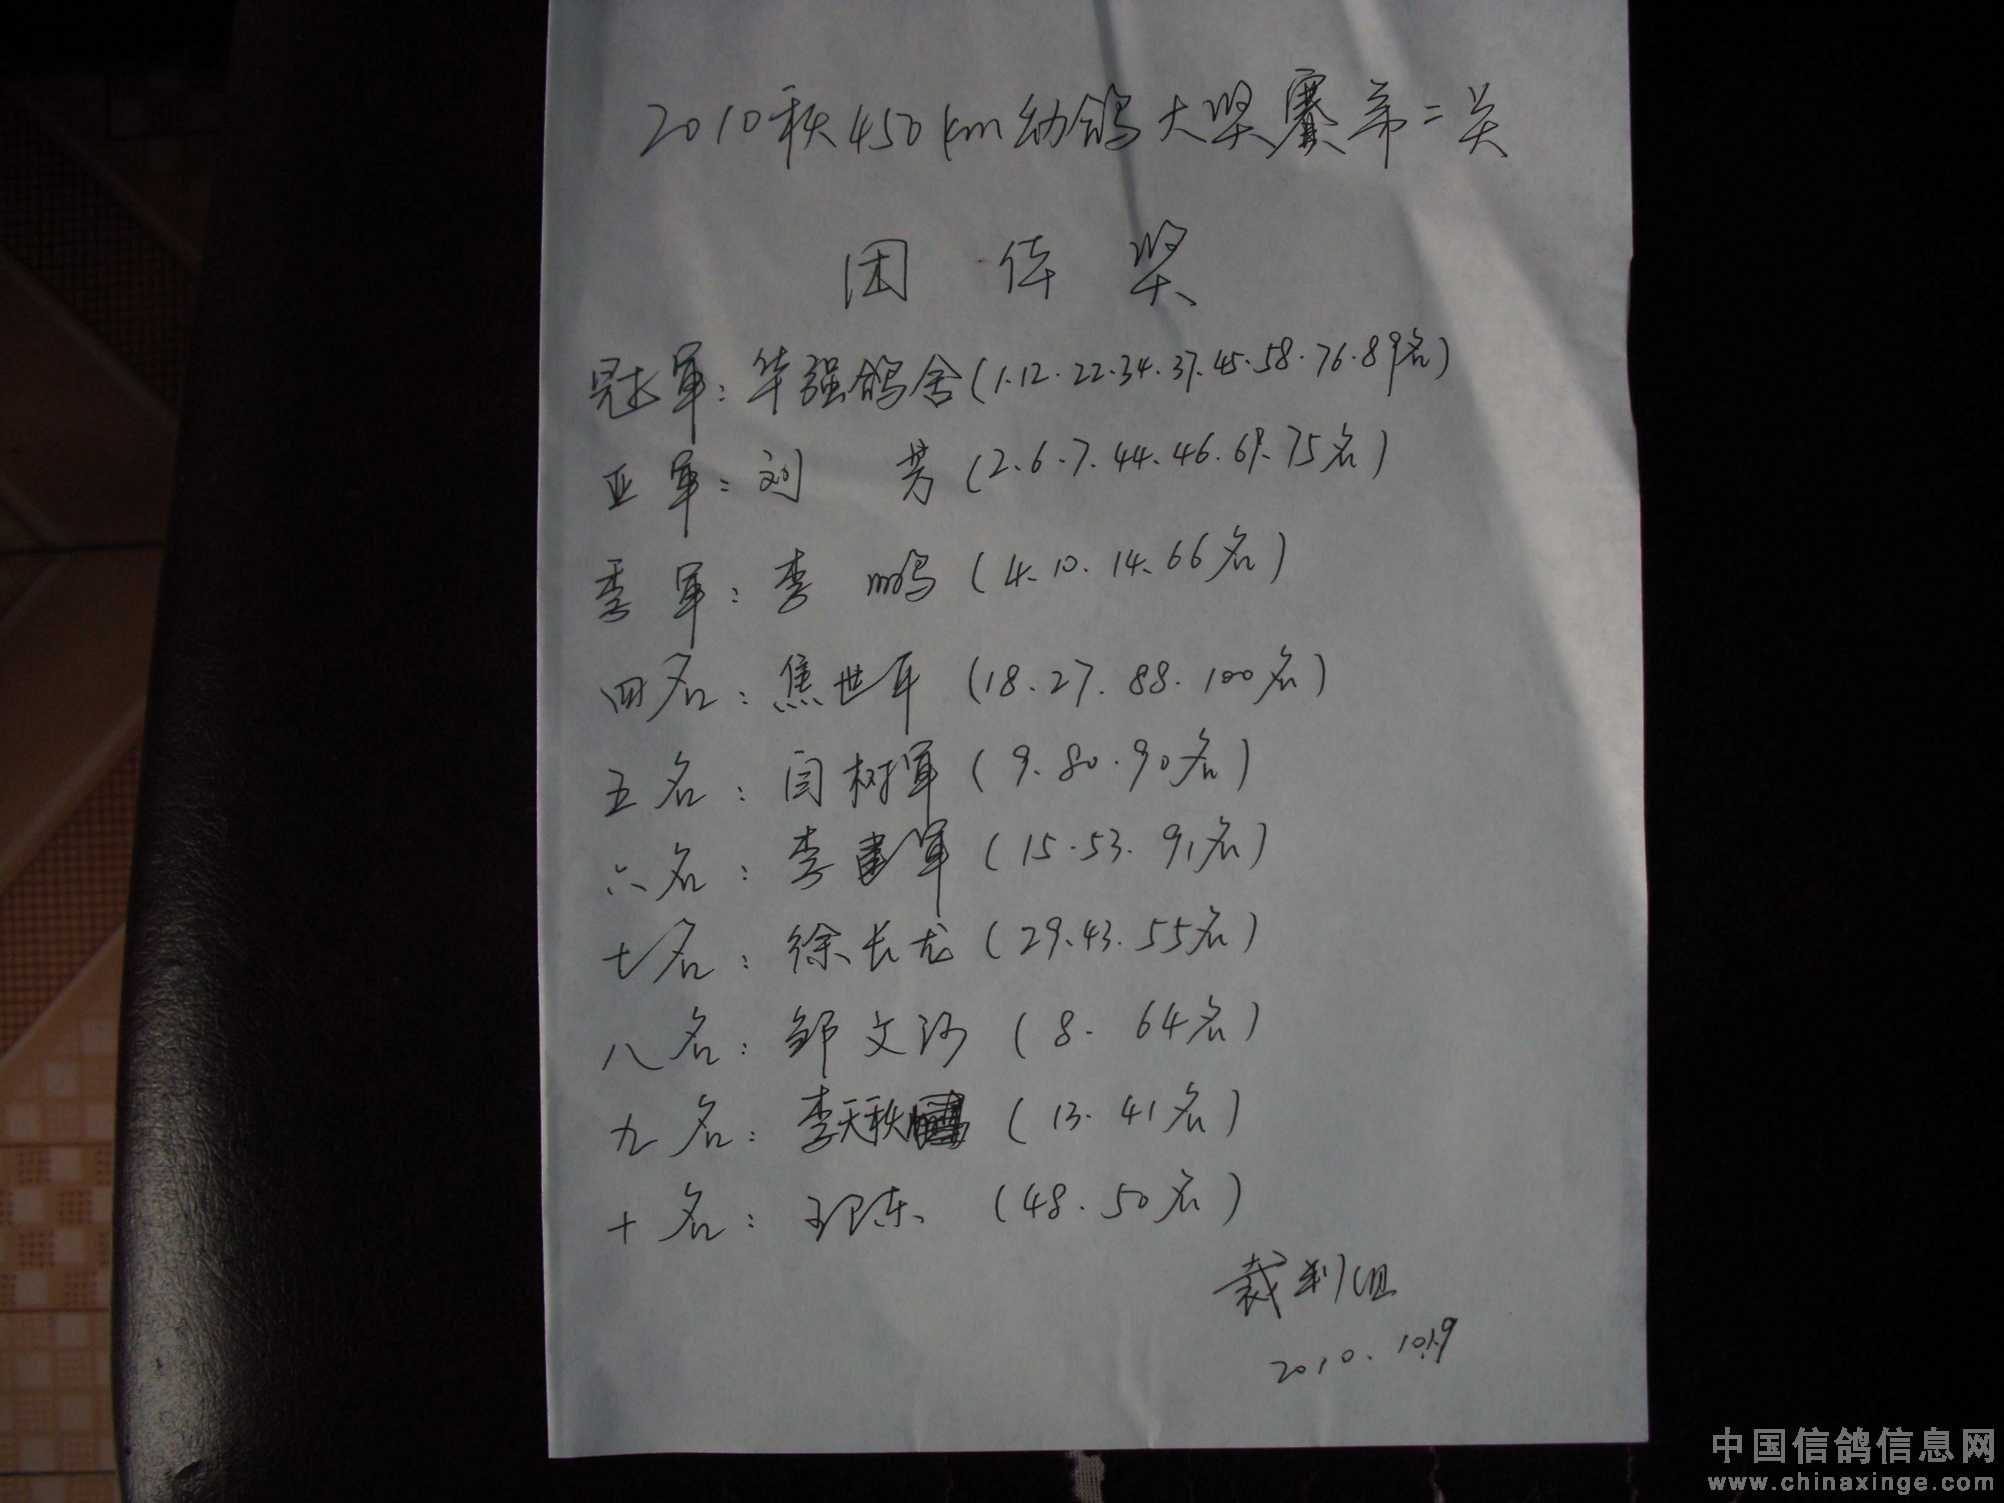 2010秋450km幼鸽大奖赛第二关
团体奖
冠军：华强鸽舍（1.12.22.34.37.45.58.76.89名）
亚军：刘 芳（2.6.7.44.46.69.75名）
季军：李 鹏（4.10.14.66名）
四名：焦世军（18.27.88.100名）
五名：闫树军（9.80.90名）
六名：李建军（15.53.91名）
七名：徐长龙（29.43.55名）
八名：邹文 （8.64名）
九名：李天秋（13.41名）
十名：（48.50名）
裁判组
2010.10.19
中国信鸽信息网
www.chinaxinge.com